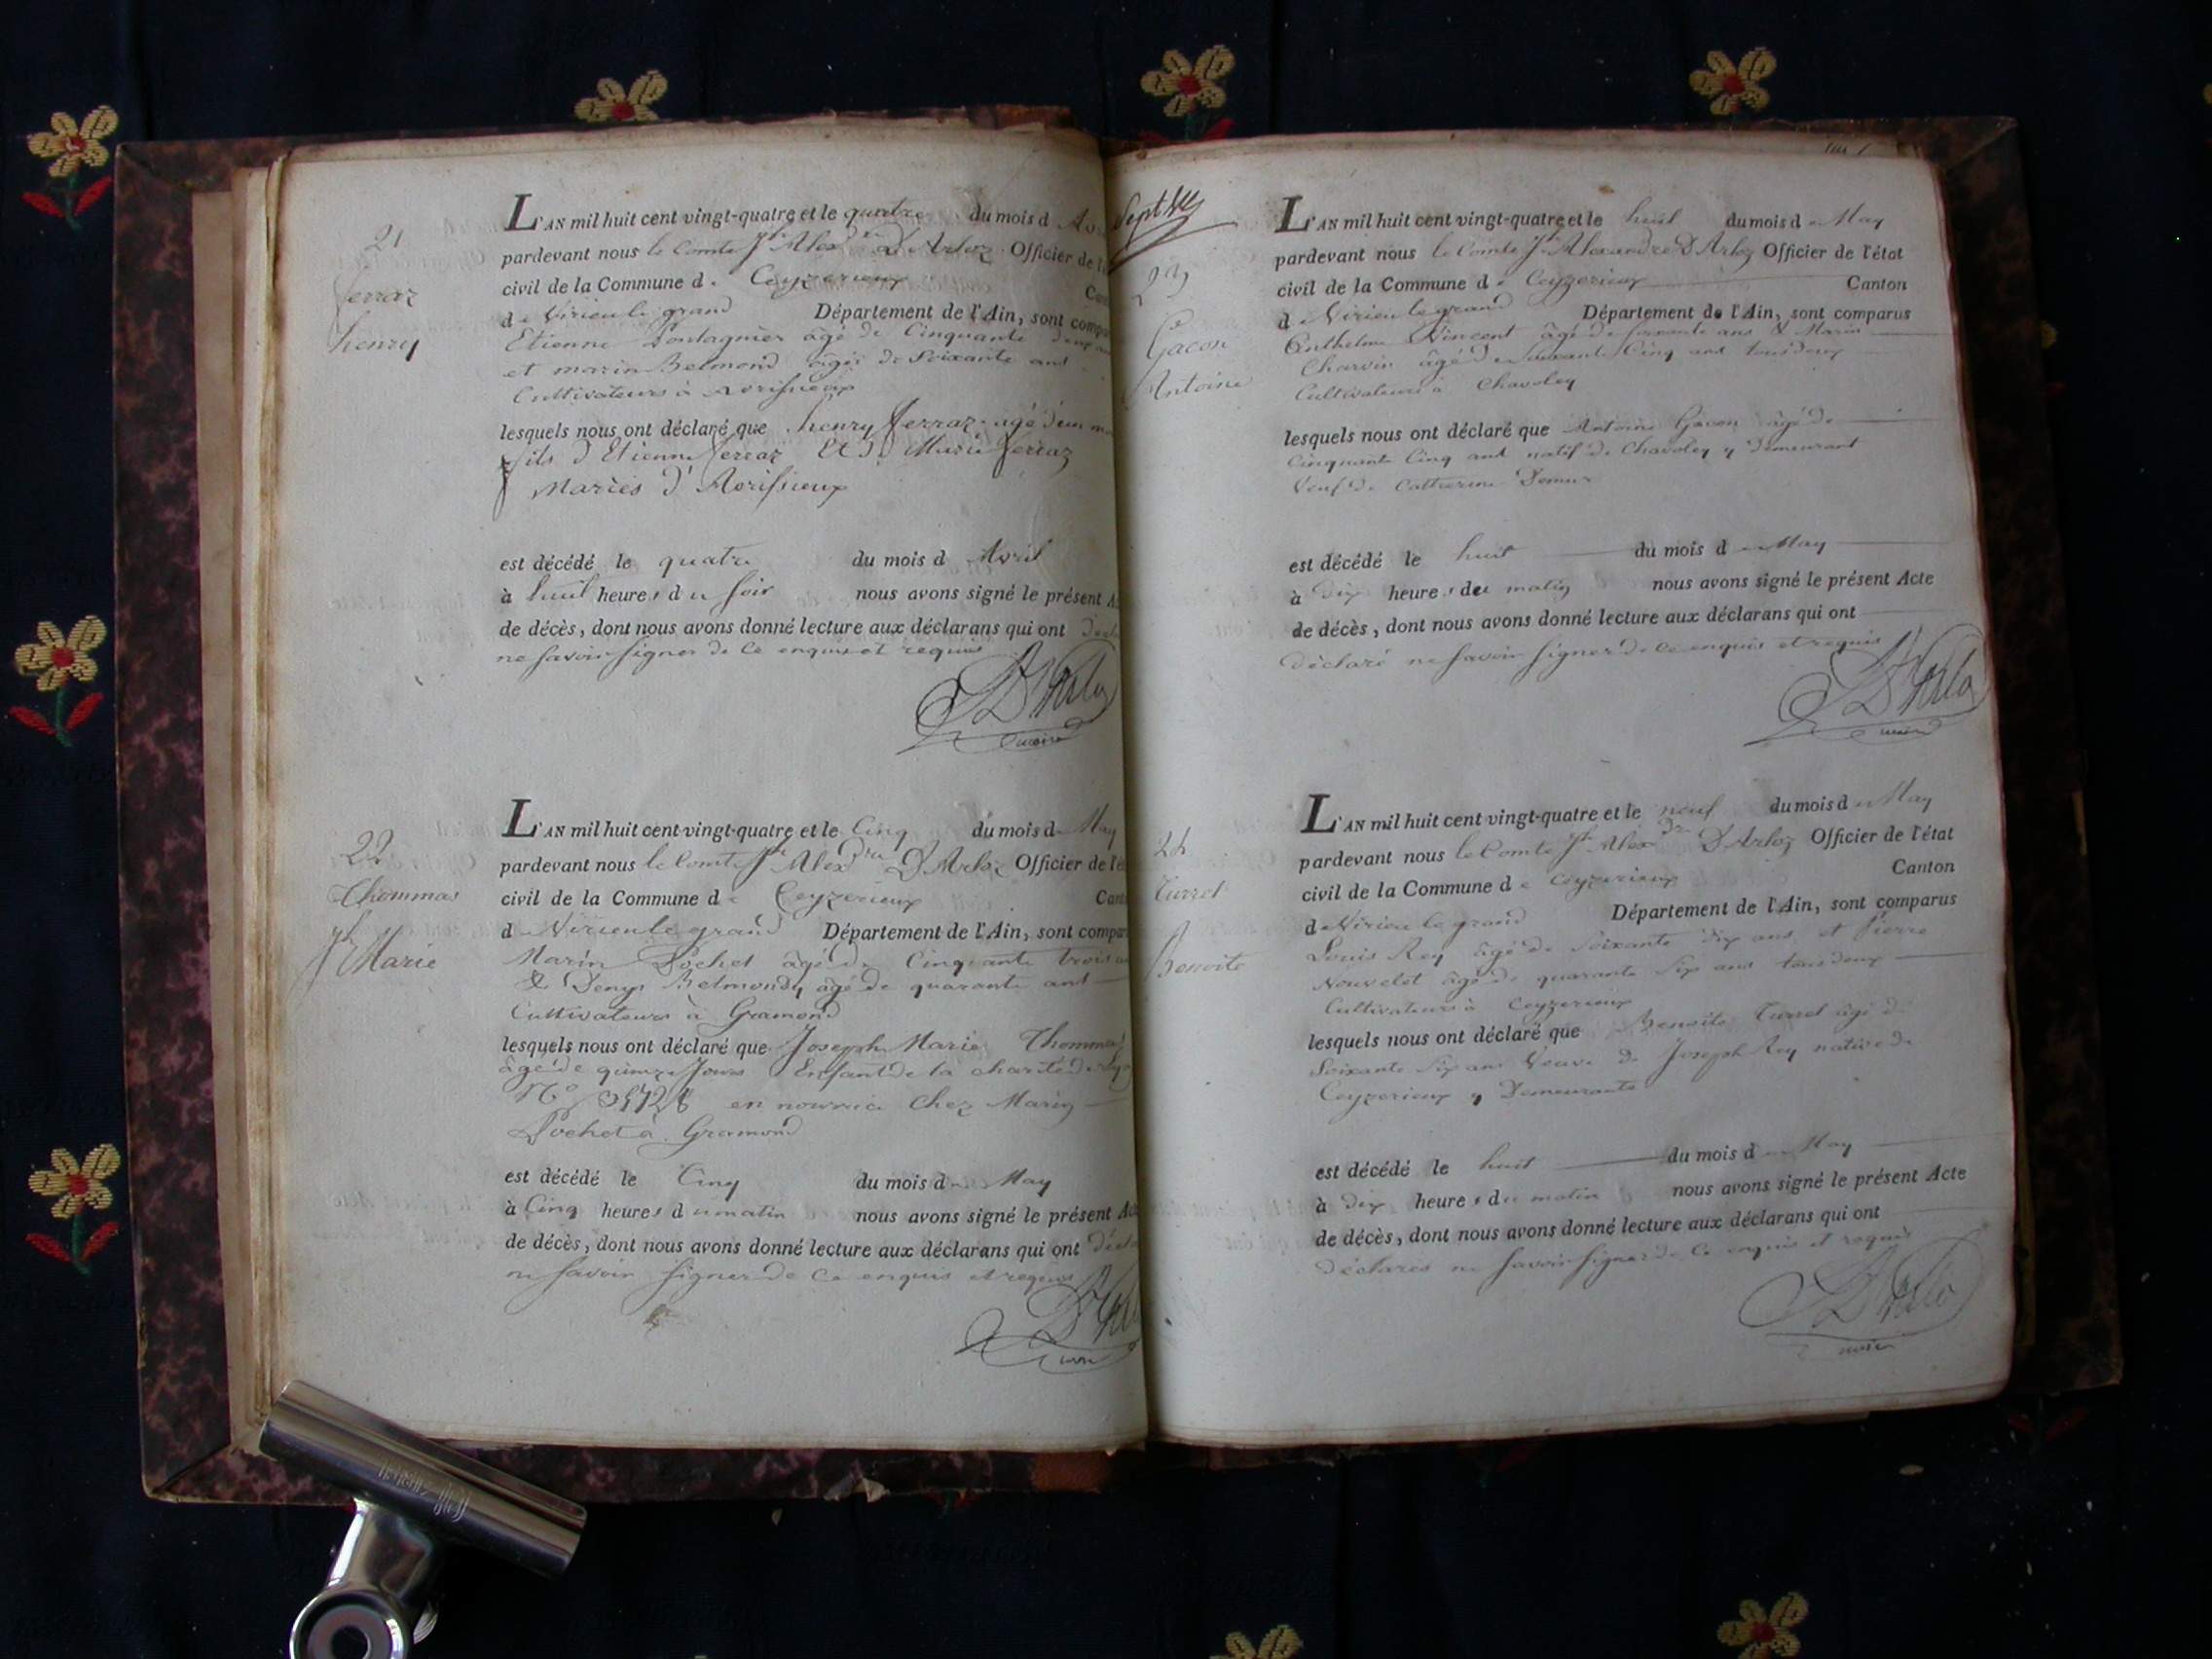 21
ferraz
henry
L'AN mil huit cent vingt-quatre et le quatre du mois d
pardevant nous le Comte Jh Alexdre D'Arloz Officier de l'é
civil de la Commune de Ceyzerieux Can
de Virieu le grand Département de l'Ain, sont compa
Etienne âgé de Cinquante deux
et marin Belmond âgé de Soixante ans
Cultivateurs à avrissieux
lesquels nous ont déclaré que henry ferraz âgé d'un
fils d'Etienne ferraz Et d Marie ferraz
Mariés d'Avrissieux
est décédé le quatre du mois d Avril
à huit heures du soir nous avons signé le présent A
de décès, dont nous avons donné lecture aux déclarans qui ont décla
ne savoir signer de ce enquis et requis
D'Arloz
maire
22
Thommas
Jh Marie
L'AN mil huit cent vingt-quatre et le Cinq du mois de May
pardevant nous le Comte Jh Alexdre D'Arloz Officier de l'ét
civil de la Commune de Ceyzerieux Cant
de Virieu le grand Département de l'Ain, sont compar
Marin Pochet âgé de Cinquante trois
& Denys Belmondy âgé de quarante ans
Cultivateurs à Gramond
lesquels nous ont déclaré que Joseph Marie Thommas
âgé de quinze Jours Enfant de la charité de Ly
No en nourrice Chez Marin
Pochet à Gramond
est décédé le Cinq du mois de May
à Cinq heures du matin nous avons signé le présent Act
de décès, dont nous avons donné lecture aux déclarans qui ont décla
ne savoir signer de ce enquis et requis
D'Arloz
maire
23
Gacon
Antoine
L'AN mil huit cent vingt-quatre et le huit du mois de May
pardevant nous le Comte Jh Alexandre D'Arloz Officier de l'état
civil de la Commune de Ceyzerieux Canton
de Virieu le grand Département de l'Ain, sont comparus
Anthelme Vincent âgé de soixante ans & Marin
Charvin âgé de Cinq ans tous deux
Cultivateurs à Chavoley
lesquels nous ont déclaré que Antoine Gacon âgé de
Cinquante Cinq ans natif de Chavoley y demeurant
Veuf de Catherine
est décédé le huit du mois de May
à dix heures du matin nous avons signé le présent Acte
de décès, dont nous avons donné lecture aux déclarans qui ont
déclaré ne savoir signer de ce enquis et requis
D'Arloz
maire
24
Turret
Benoite
L'AN mil huit cent vingt-quatre et le neuf du mois de May
pardevant nous le Comte Jh Alexdre D'Arloz Officier de l'état
civil de la Commune de Ceyzerieux Canton
de Virieu le grand Département de l'Ain, sont comparus
Louis Rey âgé de Soixante dix ans et Pierre
Nouvelet âgé de quarante Six ans tous deux
Cultivateurs à Ceyzerieux
lesquels nous ont déclaré que Benoite Turret âgé de
Soixante Six ans Veuve de Joseph Rey native de
Ceyzerieux y Demeurante
est décédé le huit du mois de May
à dix heures du matin nous avons signé le présent Acte
de décès, dont nous avons donné lecture aux déclarans qui ont
déclarés ne savoir signer de ce enquis et requis
D'Arloz
maire